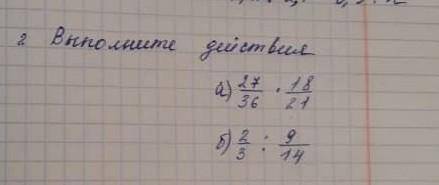 2 Выполните действия
а) 27/36 · 18/21
б) 2/3 : 9/14